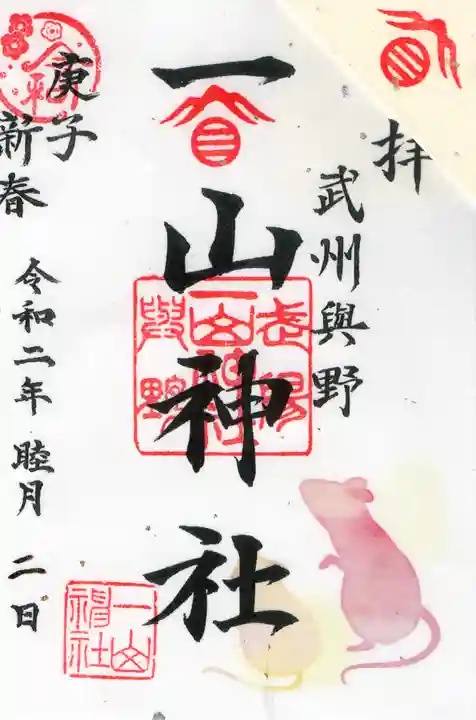 拝
武州與野
一山神社
武陽
一山神社
與野
庚子
新春
令和二年 睦月 二日
一山
神社